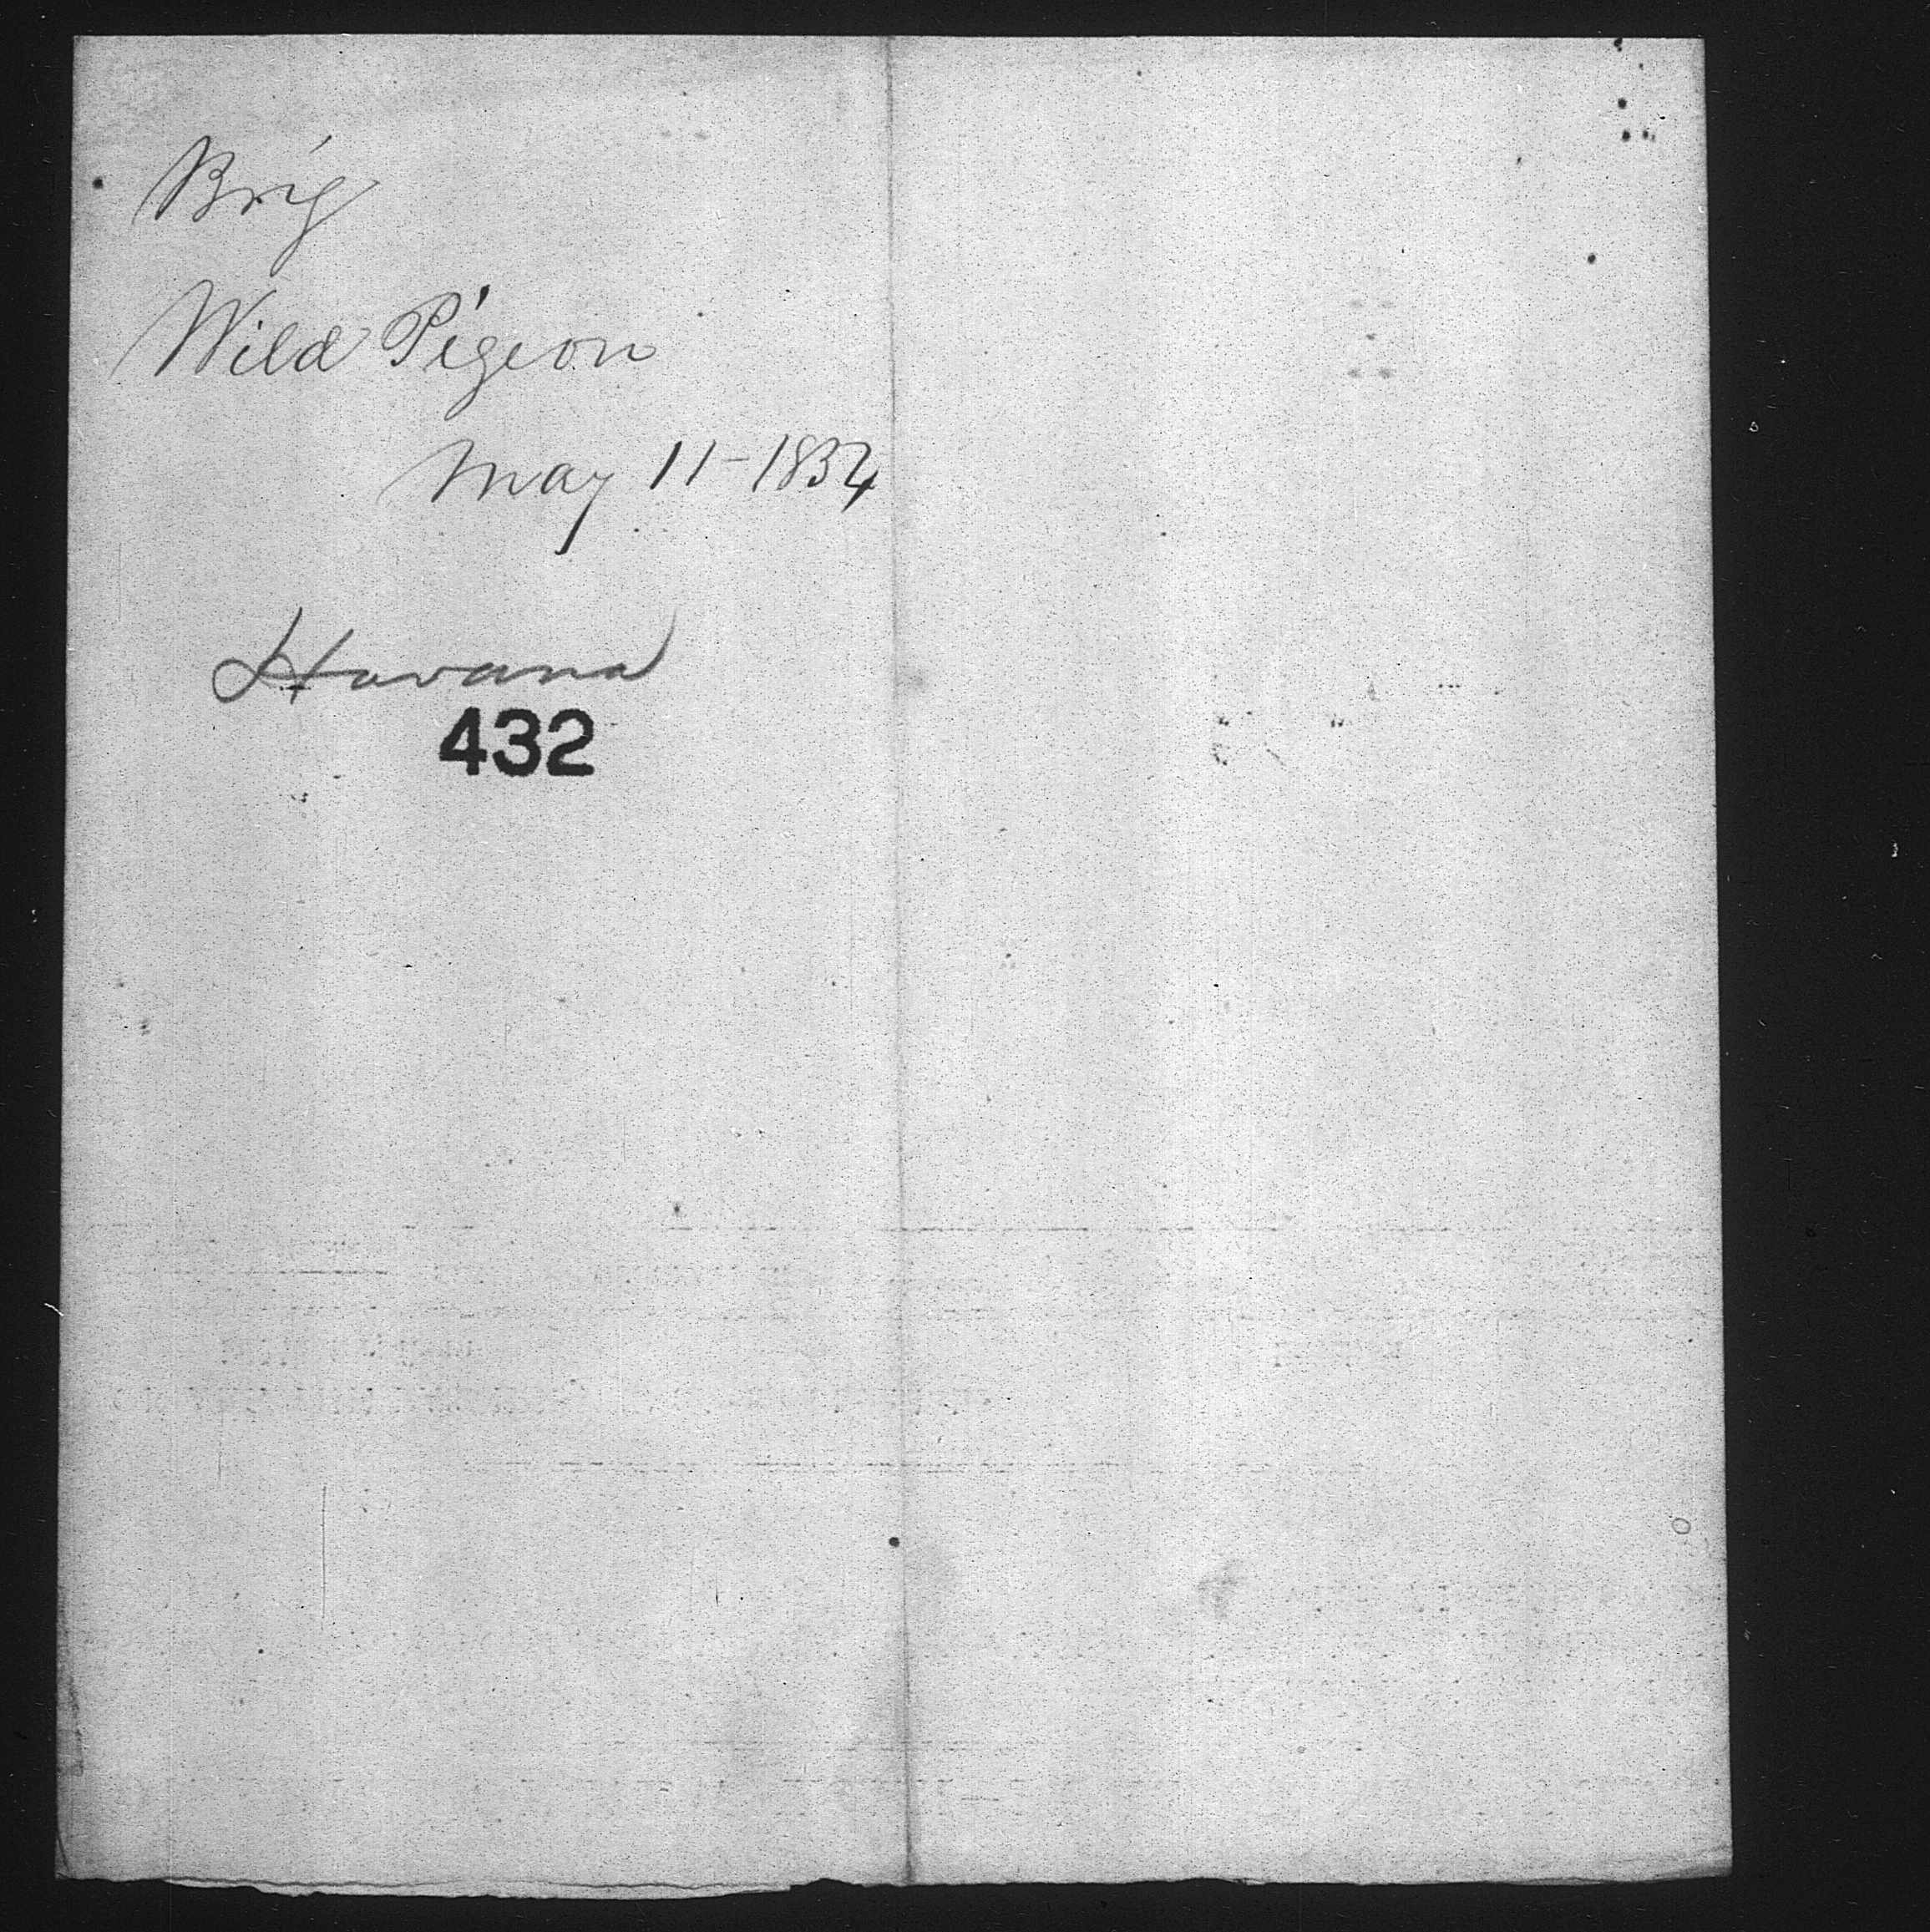 Brig
Wild Pigeon
May 11-1834
Havana
432